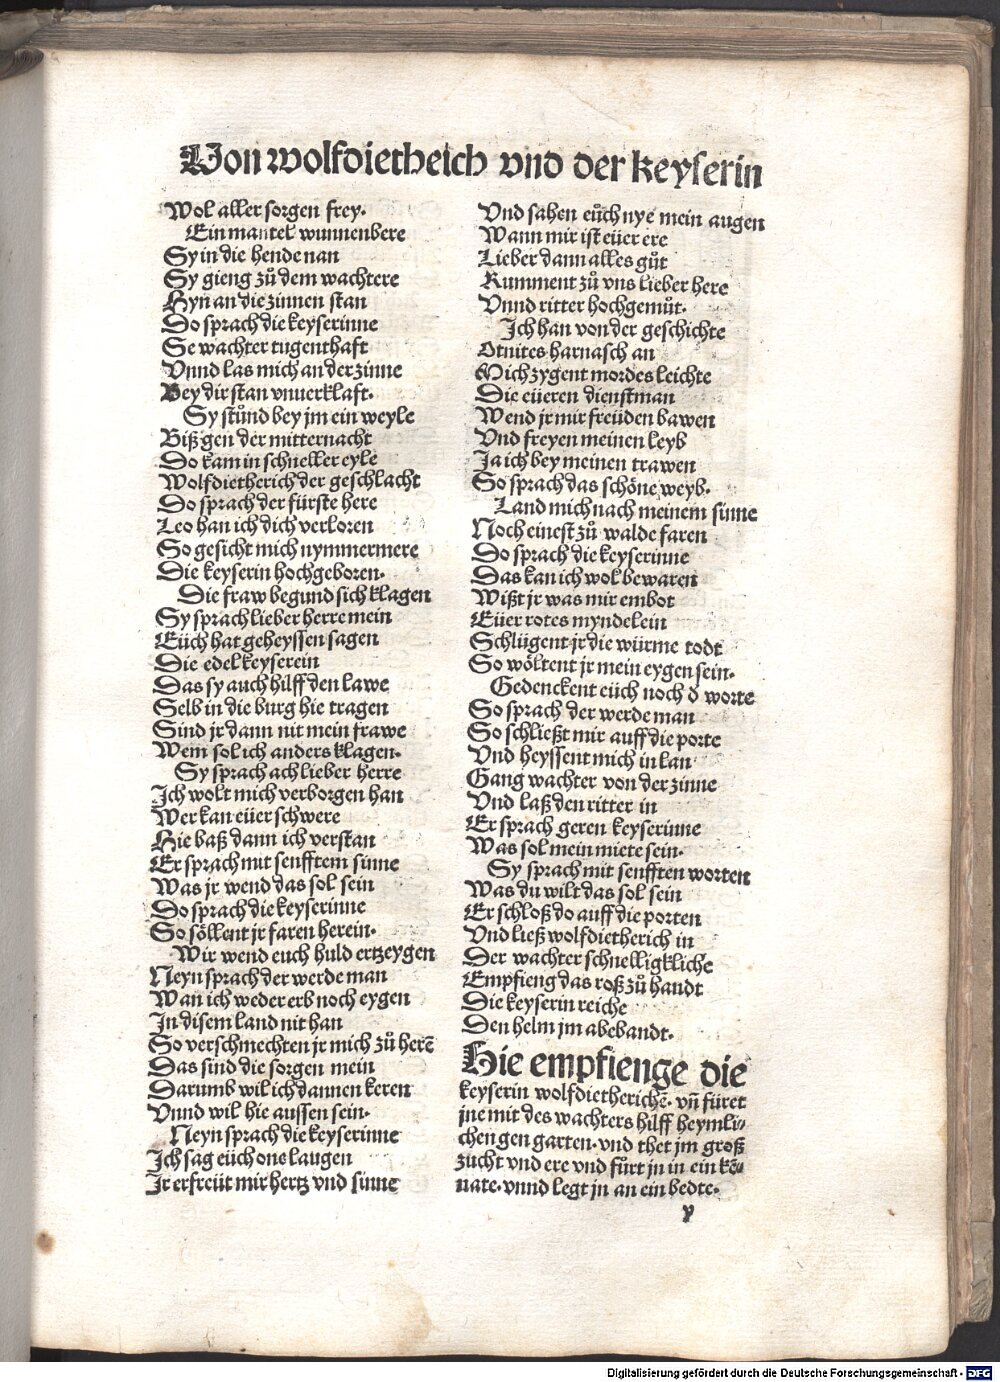 Von wolfdietheich vnd der keyserin
Wol aller sorgen frey.
Ein mantel wunnenbere
Sy in die hende nan
Sy gieng zů dem wachtere
Hyn an die zinnen stan
Do sprach die keyserinne
Se wachter tugenthaft
Vnnd las mich an der zinne
Bey dir stan vnuerklaft.
Sy stůnd bey jm ein weyle
Biß gen der mitternacht
Do kam in schneller eyle
Wolfdietherich der geschlacht
Do sprach der fürste here
Leo han ich dich verloren
So gesicht mich nymmermere
Die keyserin hochgeboren.
Die fraw begund sich klagen
Sy sprach lieber herre mein
Eüch hat geheyssen sagen
Die edel keyserein
Das sy auch hilff den lawe
Selb in die burg hie tragen
Sind jr dann nit mein frawe
Wem sol ich anders klagen.
Sy sprach ach lieber herre
Ich wolt mich verborgen han
Wer kan eüer schwere
Hie baß dann ich verstan
Er sprach mit senfftem sinne
Was jr wend das sol sein
Do sprach die keyserinne
So söllent jr faren herein.
Wir wend euch huld ertzeygen
Neyn sprach der werde man
Wan ich weder erb noch eygen
In disem land nit han
So verschmechten jr mich zů herē
Das sind die sorgen mein
Darumb wil ich dannen keren
Vnnd wil hie aussen sein.
Neyn sprach die keyserinne
Ich sag eüch one laugen
Ir erfreüt mir hertz vnd sinne
Vnd sahen eüch nye mein augen
Wann mir ist eüer ere
Lieber dann alles gůt
Kumment zů vns lieber here
Vnnd ritter hochgemůt.
Ich han von der geschichte
Otnites harnasch an
Mich zygent mordes leichte
Die eüeren dienstman
Wend jr mir freüden bawen
Vnd freyen meinen leyb
Ja ich bey meinen trawen
So sprach das schöne weyb.
Land mich nach meinem sinne
Noch einest zů walde faren
Do sprach die keyserinne
Das kan ich wol bewaren
Wißt jr was mir embot
Eüer rotes myndelein
Schlügent jr die würme todt
So wöltent jr mein eygen sein.
Gedenckent eüch noch d worte
So sprach der werde man
So schließt mir auff die porte
Vnd heyssent mich in lan
Gang wachter von der zinne
Vnd laß den ritter in
Er sprach geren keyserinne
Was sol mein miete sein.
Sy sprach mit senfften worten
Was du wilt das sol sein
Er schloß do auff die porten
Vnd ließ wolfdietherich in
Der wachter schnelligkliche
Empfieng das roß zů handt
Die keyserin reiche
Den helm jm abebandt.
Hie empfienge die
keyserin wolfdietherichē. vn̄ füret
jne mit des wachters hilff heymli⸗
chen gen garten. vnd thet jm groß
zucht vnd ere vnd fůrt jn in ein kē⸗
nate. vnnd legt jn an ein bedte.
y
Digitalisierung gefördert durch die Deutsche Forschungsgemeinschaft - DFG